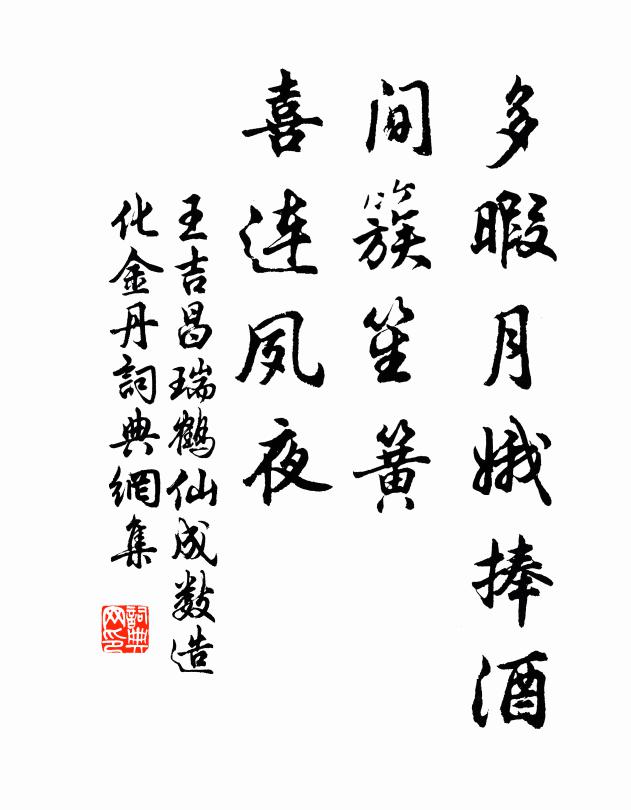 多暇月娥捧酒
间簇笙簧
喜連夙夜
王吉昌瑞鶴仙成数造
化金丹詞典網集
詞典網印